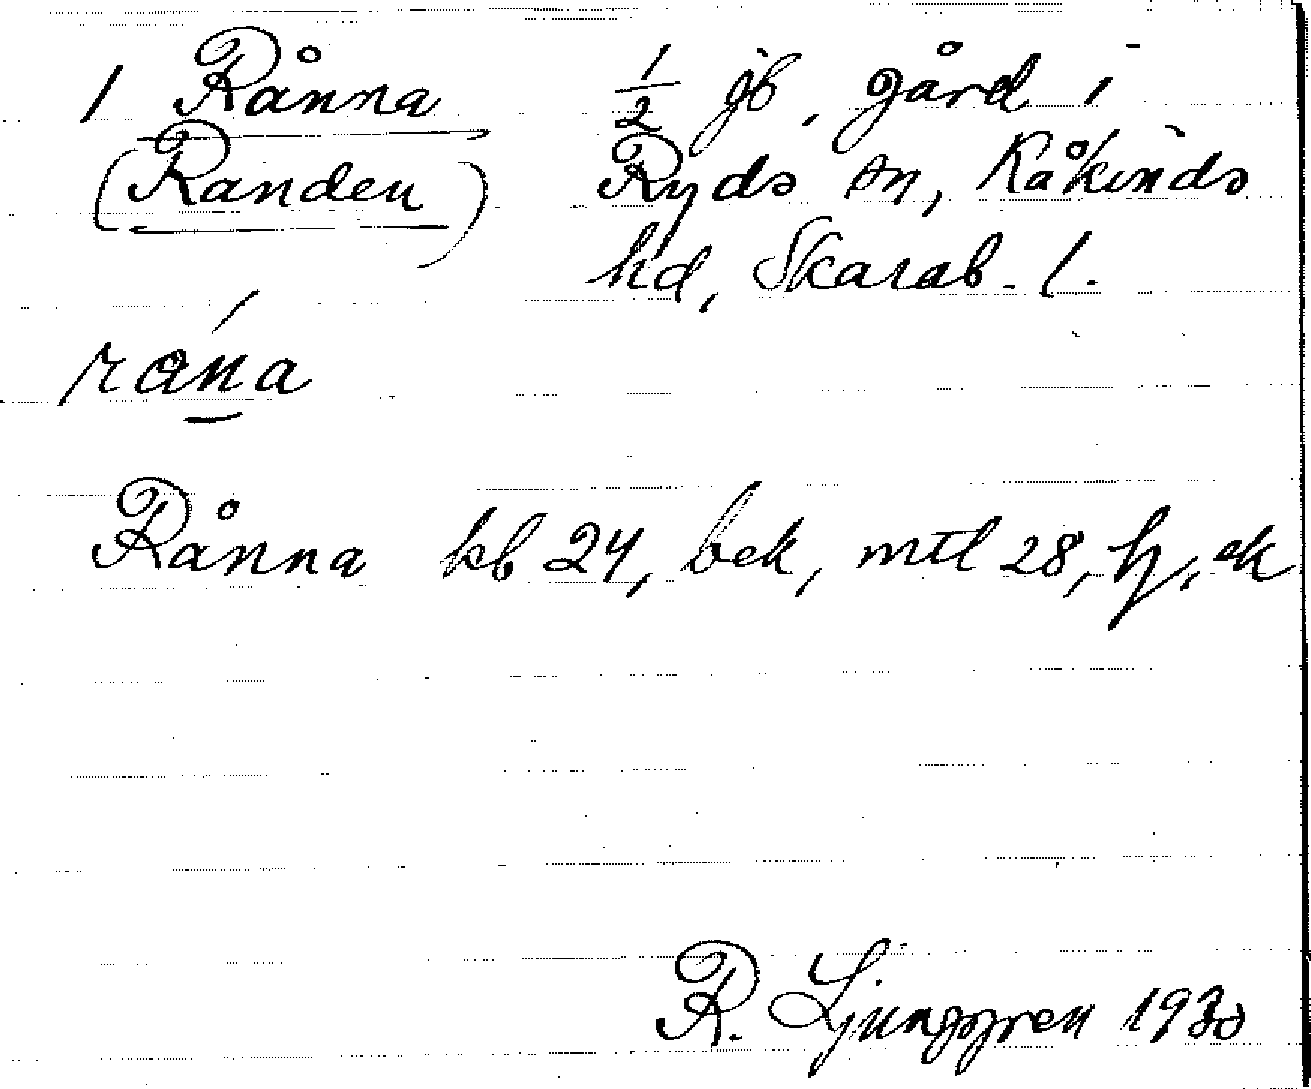 1 Rånna 1/2 jb, gård i
(Randen) Ryds sn, Kåkinds
hd, Skarab. l.
Rånna kb 24, bek, mtl 28, hj, ek
R. Ljunggren 1930